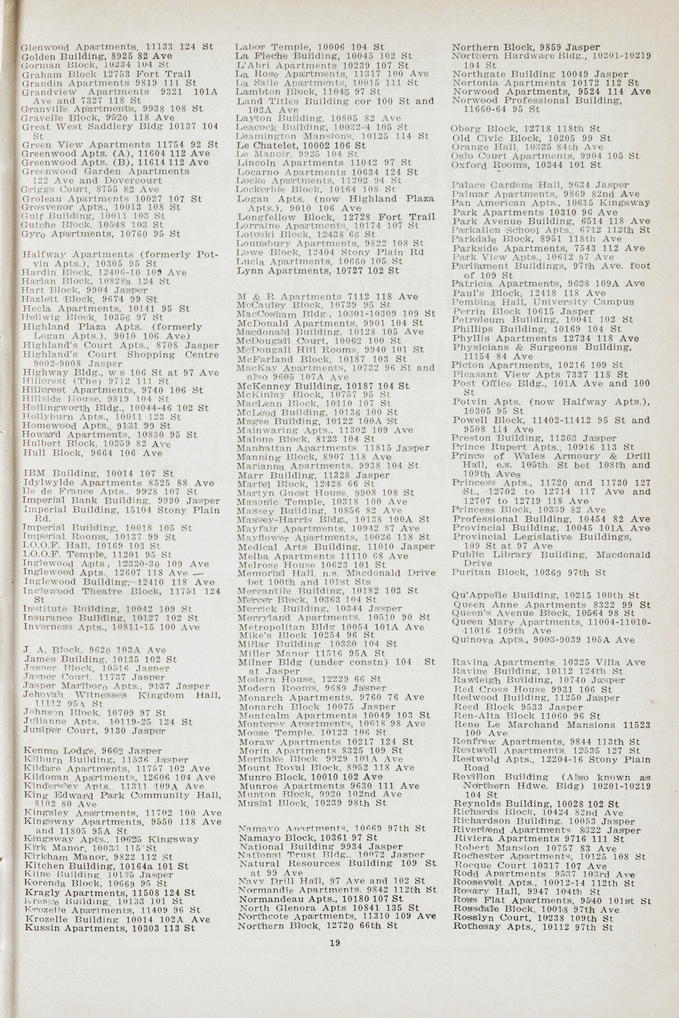 Glenwood Apartments, 11133 124 St
Golden Building, 8925 82 Ave
Gorman Block, 10234 104 St
Graham Block 12753 Fort Trail
Grandin Apartments 9819 111 St
Grandview Apartments 9321 101A
Ave and 7327 118 St
Granville Apartments, 9938 108 St
Gravelle Block, 9520 118 Ave
Great West Saddlery Bldg 10137 104
St
Green View Apartments 11754 92 St
Greenwood Apts. (A), 11604 112 Ave
Greenwood Apts. (B), 11614 112 Ave
Greenwood Garden Apartments
122 Ave and Dovercourt
Griggs Court, 8755 82 Ave
Groleau Apartments 10027 107 St
Grosvenor Apts., 10013 108 St
Gulf Building, 10011 103 St
Gutche Block, 10548 103 St
Gyro Apartments, 10760 95 St
Halfway Apartments (formerly Pot-
vin Apts.), 10305 95 St
Hardin Block, 12406-10 109 Ave
Harlan Block, 10828a 124 St
Hart Block, 9904 Jasper
Hazlett Block, 9674 99 St
Hecla Apartments, 10141 95 St
Hellwig Block, 10356 97 St
Highland Plaza Apts. (formerly
Logan Apts.), 9010 106 Ave)
Highland's Court Apts., 8708 Jasper
Highland's Court Shopping Centre
9002-9008 Jasper
Highway Bldg., w s 106 St at 97 Ave
Hillcrest (The) 9712 111 St
Hillcrest Apartments, 9740 106 St
Hillside House, 9819 104 St
Hollingworth Bldg., 10044-46 102 St
Hollyburn Apts., 10011 123 St
Homewood Apts., 9131 99 St
Howard Apartments, 10830 95 St
Hulbert Block, 10359 82 Ave
Hull Block, 9664 106 Ave
IBM Building, 10014 107 St
Idylwylde Apartments 8525 88 Ave
Ile de France Apts., 9928 107 St
Imperial Bank Building, 9990 Jasper
Imperial Building, 15104 Stony Plain
Rd.
Imperial Building, 10018 105 St
Imperial Rooms, 10137 99 St
I.O.O.F. Hall, 10169 103 St
I.O.O.F. Temple, 11201 95 St
Inglewood Apts., 12320-30 109 Ave
Inglewood Apts., 12607 118 Ave
Inglewood Building, 12410 118 Ave
Inglewood Theatre Block, 11751 124
St
Institute Building, 10042 109 St
Insurance Building, 10127 102 St
Inverness Apts., 10811-15 100 Ave
J. A. Block, 9620 103A Ave
James Building, 10135 102 St
Jasper Block, 10516 Jasper
Jasper Court, 11737 Jasper
Jasper Marlboro Apts., 9137 Jasper
Jehovah Witnesses Kingdom Hall,
11112 95A St
Johnson Block, 10709 97 St
Julianne Apts., 10119-25 124 St
Juniper Court, 9130 Jasper
Kenmo Lodge, 9662 Jasper
Kilburn Building, 11536 Jasper
Kildare Apartments, 11757 102 Ave
Kildonan Apartments, 12606 104 Ave
Kindersley Apts., 11311 109A Ave
King Edward Park Community Hall,
8102 80 Ave
Kingsley Apartments, 11702 100 Ave
Kingsway Apartments, 9550 118 Ave
and 11805 95A St
Kingsway Apts., 10625 Kingsway
Kirk Manor, 10033 115 St
Kirkham Manor, 9822 112 St
Kitchen Building, 10164a 101 St
Kline Building 10135 Jasper
Korenda Block, 10669 95 St
Kragly Apartments, 11508 124 St
Kresge Building, 10133 101 St
Krozelle Apartments, 11409 96 St
Krozelle Building 10014 102A Ave
Kussin Apartments, 10303 113 St
Labor Temple, 10006 104 St
La Fleche Building, 10045 102 St
L'Abri Apartments 10239 107 St
La Rose Apartments, 11317 100 Ave
La Salle Apartments, 10015 111 St
Lambton Block, 11045 97 St
Land Titles Building cor 100 St and
102A Ave
Layton Building, 10805 82 Ave
Leacock Building, 10032-4 105 St
Leamington Mansions, 10125 114 St
Le Chatelet, 10002 106 St
Le Manor, 9925 104 St
Lincoln Apartments 11042 97 St
Locarno Apartments 10634 124 St
Locke Apartments, 11202 94 St
Lockerbie Block, 10164 108 St
Logan Apts. (now Highland Plaza
Apts.), 9010 106 Ave
Longfellow Block, 12728 Fort Trail
Lorraine Apartments, 10174 107 St
Lotoski Block, 12438 66 St
Lounsbury Apartments, 9822 108 St
Lowe Block, 12404 Stony Plain Rd
Lucia Apartments, 10660 105 St
Lynn Apartments, 10727 102 St
M & R Apartments 7112 118 Ave
McCauley Block, 10739 95 St
MacCosham Bldg., 10301-10309 109 St
McDonald Apartments, 9901 104 St
Macdonald Building, 10128 105 Ave
McDougall Court, 10062 100 St
McDougall Hill Rooms, 9940 101 St
McFarland Block, 10187 103 St
MacKay Apartments, 10732 96 St and
also 9605 107A Ave
McKenney Building, 10187 104 St
McKinlay Block, 10757 95 St
MacLean Block, 10110 107 St
McLeod Building, 10136 100 St
Magee Building, 10122 100A St
Mainwaring Apts., 11302 109 Ave
Malone Block, 8123 104 St
Manhattan Apartments, 11815 Jasper
Manning Block, 8907 118 Ave
Marianna Apartments, 9938 104 St
Marr Building, 11328 Jasper
Martel Block, 12428 66 St
Martyn Guest House, 9908 108 St
Masonic Temple, 10318 100 Ave
Massey Building, 10856 82 Ave
Massey-Harris Bldg., 10138 100A St
Mayfair Apartments, 10942 87 Ave
Mayflower Apartments, 10026 118 St
Medical Arts Building, 11010 Jasper
Melba Apartments 11110 68 Ave
Melrose House 10623 101 St
Memorial Hall, n.s. Macdonald Drive
bet 100th and 101st Sts
Mercantile Building, 10182 103 St
Mercer Block, 10363 104 St
Merrick Building, 10344 Jasper
Merryland Apartments, 10510 90 St
Metropolitan Bldg 10054 101A Ave
Mike's Block 10254 96 St
Millar Building 10330 104 St
Miller Manor 11516 95A St
Milner Bldg (under constn) 104 St
at Jasper
Modern House, 12229 66 St
Modern Rooms, 9689 Jasper
Monarch Apartments, 9760 76 Ave
Monarch Block 10075 Jasper
Montcalm Apartments 10049 103 St
Monterey Apartments, 10618 98 Ave
Moose Temple, 10123 106 St
Moraw Apartments 10217 124 St
Morin Apartments, 8325 109 St
Mortlake Block, 9929 101A Ave
Mount Royal Block, 8952 118 Ave
Munro Block, 10010 102 Ave
Munroe Apartments 9630 111 Ave
Munton Block, 9920 102nd Ave
Musial Block, 10239 98th St
Namayo Apartments, 10669 97th St
Namayo Block, 10361 97 St
National Building 9934 Jasper
National Trust Bldg., 10072 Jasper
Natural Resources Building 109 St
at 99 Ave
Navy Drill Hall, 97 Ave and 102 St
Normandie Apartments, 9842 112th St
Normandeau Apts., 10180 107 St
North Glenora Apts 10841 135 St
Northcote Apartments, 11310 109 Ave
Northern Block, 12720 66th St
Northern Block, 9859 Jasper
Northern Hardware Bldg., 10201-10219
104 St
Northgate Building 10049 Jasper
Nortonia Apartments 10172 112 St
Norwood Apartments, 9524 114 Ave
Norwood Professional Building,
11660-64 95 St
Oberg Block, 12718 118th St
Old Civic Block, 10205 99 St
Orange Hall, 10335 84th Ave
Oslo Court Apartments, 9904 105 St
Oxford Rooms, 10344 101 St
Palace Gardens Hall, 9634 Jasper
Palmar Apartments, 9869 82nd Ave
Pan American Apts., 10615 Kingsway
Park Apartments 10310 96 Ave
Park Avenue Building, 6514 118 Ave
Parkallen School Apts., 6712 112th St
Parkdale Block, 8951 118th Ave
Parkside Apartments, 7543 112 Ave
Park View Apts., 10612 97 Ave
Parliament Buildings, 97th Ave. foot
of 109 St
Patricia Apartments, 9638 109A Ave
Paul's Block, 12418 118 Ave
Pembina Hall, University Campus
Perrin Block 10615 Jasper
Petroleum Building, 10041 102 St
Phillips Building, 10169 104 St
Phyllis Apartments 12734 118 Ave
Physicians & Surgeons Building,
11154 84 Ave
Picton Apartments, 10216 109 St
Pleasant View Apts 7337 118 St
Post Office Bldg., 101A Ave and 100
St
Potvin Apts. (now Halfway Apts.),
10305 95 St
Powell Block, 11402-11412 95 St and
9508 114 Ave
Preston Building, 11363 Jasper
Prince Rupert Apts., 10916 113 St
Prince of Wales Armoury & Drill
Hall, e.s. 105th St bet 108th and
109th Aves
Princess Apts., 11720 and 11730 127
St., 12702 to 12714 117 Ave and
12707 to 12719 118 Ave
Princess Block, 10339 82 Ave
Professional Building, 10454 82 Ave
Provincial Building, 10045 101A Ave
Provincial Legislative Buildings,
109 St at 97 Ave
Public Library Building, Macdonald
Drive
Puritan Block, 10369 97th St
Qu'Appelle Building, 10215 100th St
Queen Anne Apartments 8322 99 St
Queen's Avenue Block, 10564 98 St
Queen Mary Apartments, 11004-11010-
11016 109th Ave
Quinova Apts., 9003-9039 105A Ave
Ravina Apartments 10325 Villa Ave
Ravine Building, 10112 124th St
Rawleigh Building, 10740 Jasper
Red Cross House 9931 106 St
Redwood Building, 11250 Jasper
Reed Block 9533 Jasper
Ren-Alta Block 11060 96 St
Rene Le Marchand Mansions 11523
100 Ave
Renfrew Apartments, 9844 113th St
Restwell Apartments 12535 127 St
Restwold Apts., 12204-16 Stony Plain
Road
Revillon Building (Also known as
Northern Hdwe. Bldg) 10201-10219
104 St
Reynolds Building, 10028 102 St
Richards Block, 10424 82nd Ave
Richardson Building, 10053 Jasper
Riverbend Apartments 8322 Jasper
Riviera Apartments 9716 111 St
Robert Mansion 10757 83 Ave
Rochester Apartments, 10125 108 St
Rocque Court 10317 107 Ave
Rodd Apartments 9537 103rd Ave
Roosevelt Apts., 10012-14 112th St
Rosary Hall, 9947 104th St
Ross Flat Apartments, 9540 101st St
Rossdale Block, 10018 97th Ave
Rosslyn Court, 10238 109th St
Rothesay Apts., 10112 97th St
19